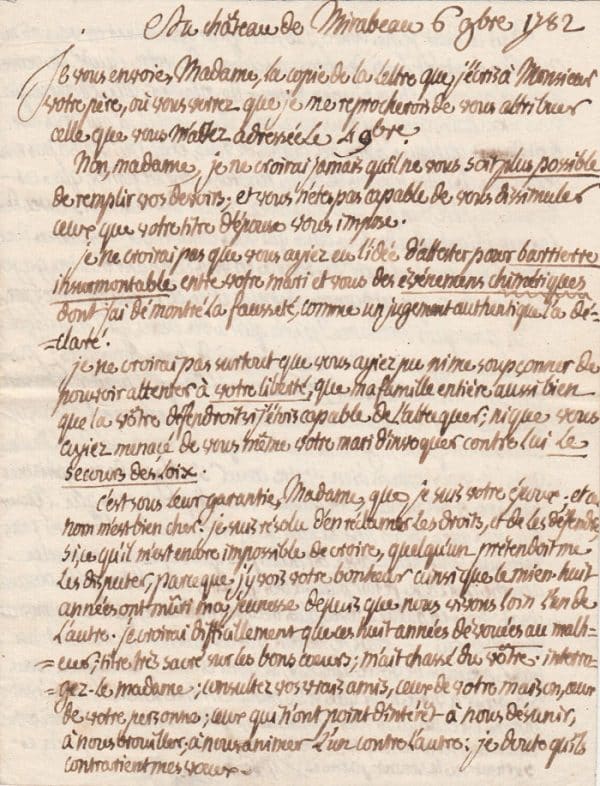 Au château de Mirabeau 6 9bre 1782
Je vous envoie, Madame, la copie de la lettre que j'écris à Monsieur
votre père, où vous verrez que je me reprocherois de vous attribuer
celle que vous m'avez adressée le 4 9bre.
Non, madame, je ne croirai jamais qu'il ne vous soit plus possible
de remplir vos devoirs; et vous n'êtes pas capable de vous dissimuler
ceux que votre titre d'épouse vous impose.
je ne croirai pas que vous ayiez eu l'idée d'attester pour barrierre
insurmontable entre votre mari et vous des événemens chimériques
dont j'ai démontré la fausseté, comme un jugement authentique l'a dé-
=claré.
je ne croirai pas surtout que vous ayiez pu ni me soupçonner de
pouvoir attenter à votre liberté, que ma famille entière aussi bien
que la vôtre défendroit si j'étois capable de l'attaquer; ni que vous
ayiez menacé de vous même votre mari d'invoquer contre lui le
secours des loix.
c'est sous leur garantie, Madame, que je suis votre époux; et ce
nom m'est bien cher. je suis résolu d'en réclamer les droits, et de les défendre,
si, ce qu'il m'est encore impossible de croire, quelqu'un prétendoit me
les disputer, parceque j'y vois votre bonheur ainsi que le mien. huit
années ont mûri ma jeunesse depuis que nous vivons loin l'un de
l'autre. je croirai difficilement que ces huit années dévouées au malh-
=eur, titre très sacré sur les bons coeurs; m'ait chassé du vôtre. interro-
=gez-le madame; consultez vos vrais amis, ceux de votre maison, ceux
de votre personne; ceux qui n'ont point d'intérêt à nous désunir,
à nous brouiller, à nous animer l'un contre l'autre: je doute qu'ils
contrarient mes voeux.